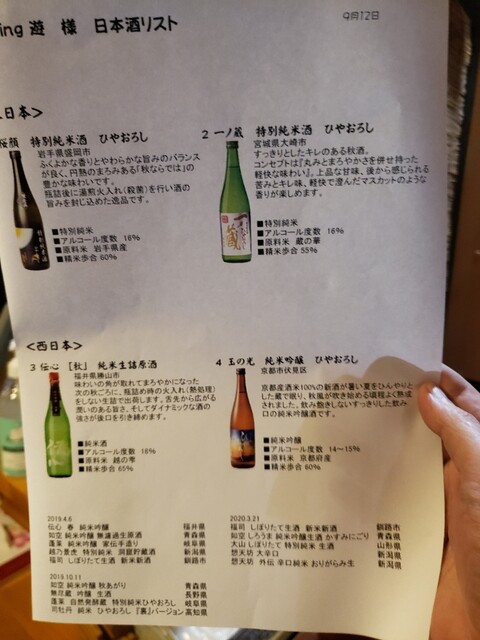 ing 遊　様　日本酒リスト
9月12日
日本＞
桜顔　特別純米酒　ひやおろし
岩手県盛岡市
ふくよかな香りとやわらかな旨みのバランス
が良く、円熟のまろみある「秋ならでは」の
豊かな味わいです。
瓶詰後に湯煎火入れ（殺菌）を行い酒の
旨みを封じ込めた逸品です。
■特別純米
■アルコール度数　16％
■原料米　岩手県産
■精米歩合 60％
2 一ノ蔵　特別純米酒　ひやおろし
宮城県大崎市
すっきりとしたキレのある秋酒。
コンセプトは『丸みとまろやかさを併せ持った
軽快な味わい』。上品な甘味、後から感じられる
苦みとキレ味、軽快で澄んだマスカットのような
香りが楽しめます。
■特別純米
■アルコール度数　16％
■原料米　蔵の華
■精米歩合 55％
＜西日本＞
3 伝心　［秋］　純米生詰原酒
福井県勝山市
味わいの角が取れてまろやかになった
次の秋ごろに、瓶詰め時の火入れ（熱処理）
をしない生詰で出荷します。舌先から広がる
潤いのある旨さ、そしてダイナミックな酒の
強さが後口を引き締めます。
■純米酒
■アルコール度数　18％
■原料米　越の雫
■精米歩合 65％
4 玉の光　純米吟醸　ひやおろし
京都市伏見区
京都産酒米100％の新酒が暑い夏をひんやりと
した蔵で眠り、秋風が吹き始める頃程よく熟成
されました。飲み飽きしないすっきりした飲み
口の純米吟醸酒です。
■純米吟醸
■アルコール度数　14～15％
■原料米　京都府産
■精米歩合 60％
2019.4.6
伝心　春　純米吟醸　福井県
如空 純米吟醸 無濾過生原酒　青森県
蓬莱　純米吟醸　家伝手造り　岐阜県
越乃景虎　特別純米　洞窟貯蔵酒　新潟県
福司　しぼりたて生酒　新米新酒　釧路市
2019.10.11
如空 純米吟醸 秋あがり　青森県
無尽蔵　吟醸　生酒　長野県
蓬莱　自然発酵蔵　特別純米ひやおろし　岐阜県
司牡丹　純米　ひやおろし　『裏』バージョン 高知県
2020.3.21
福司 しぼりたて生酒　新米新酒　釧路市
如空 しろうま 純米吟醸生酒 かすみにごり　青森県
大山 しぼりたて 特別純米 生酒　山形県
想天坊 大辛口　新潟県
想天坊　外伝　辛口純米 おりがらみ生　新潟県